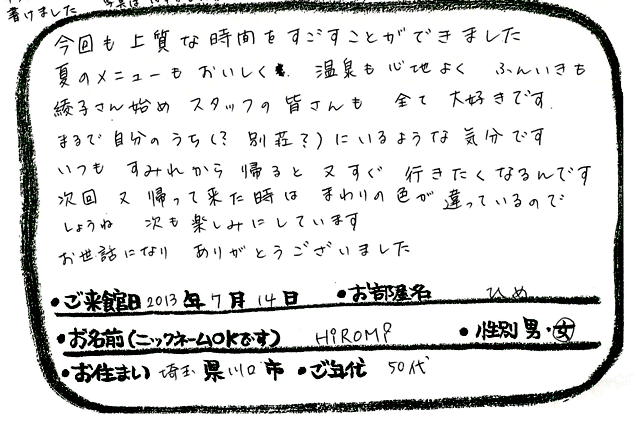 書けました
今回も上質な時間をすごすことができました
夏のメニューもおいしく 温泉も心地よく ふんいきも
綾子さん始め スタッフの皆さんも 全て 大好きです.
まるで自分のうち(? 別荘?)にいるような気分です
いつも すみれから 帰ると 又すぐ 行きたくなるんです
次回 又 帰って来た時は まわりの色が 違っているので
しょうね 次も楽しみにしています
お世話になり ありがとうございました
•ご来館日 2013年7月14日 •お部屋名 ひめ
•お名前(ニックネームOKです) HiROMi •性別 男・女
•お住まい 埼玉県川口市 •ご年代 50代